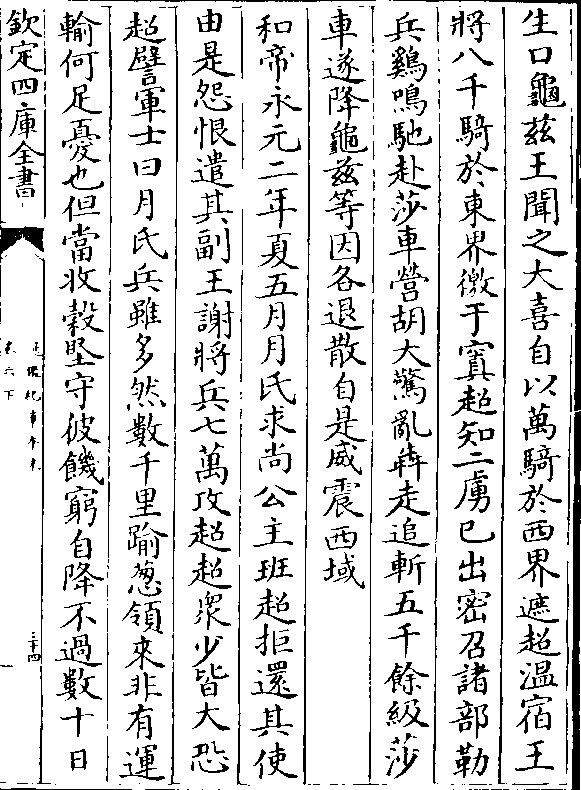 生口龜茲王聞之大喜自以萬騎於西界遮超温宿王
將八千騎於東界徼于窴超知二虜已出密召諸部勒
兵鷄鳴馳赴莎車營胡大驚亂犇走追斬五千餘級莎
車遂降龜茲等因各退散自是威震西域
和帝永元二年夏五月月氏求尚公主班超拒還其使
由是怨恨遣其副王謝將兵七萬攻超超衆少皆大恐
超譬軍士曰月氏兵雖多然數千里踰葱領來非有運
輸何足憂也但當收穀堅守彼饑窮自降不過數十日
欽定四庫全書
通鑑紀事本末
卷六下
三十四